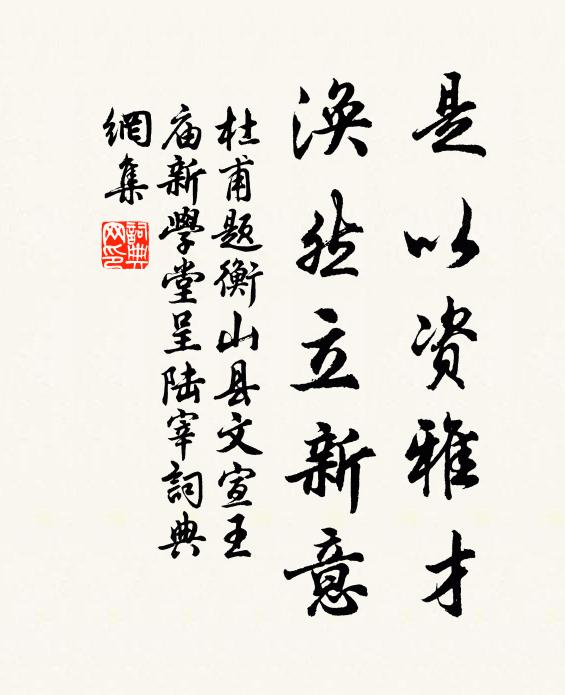 是以资雅才
涣然立新意
杜甫题衡山县文宣王
庙新學堂呈陆宰詞典
網集
詞典
网印